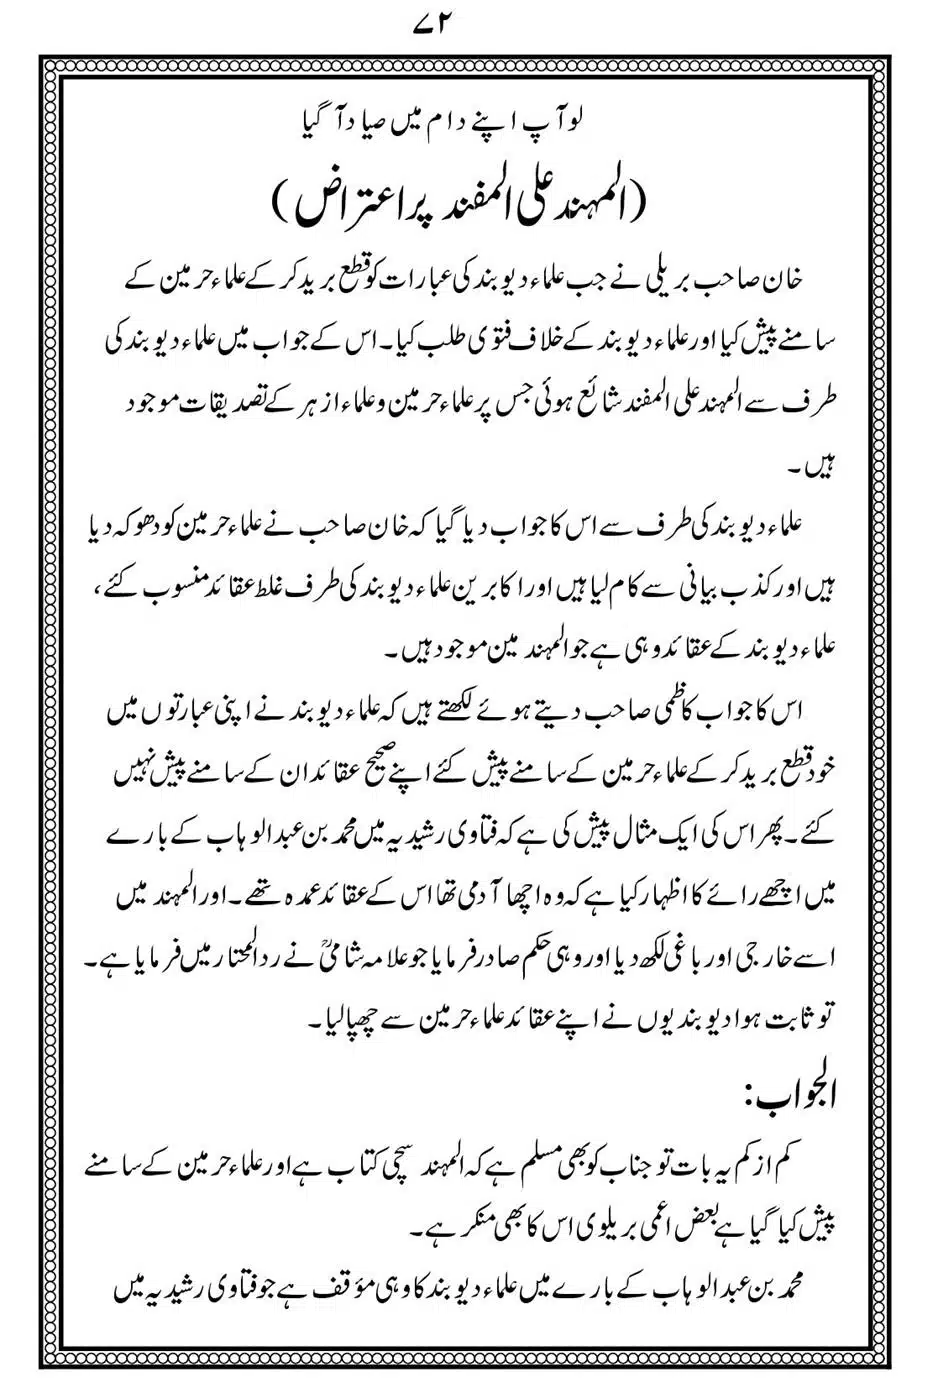 ۷۲
لو آپ اپنے دام میں صیاد آ گیا
(المہند علی المفند پر اعتراض)
خان صاحب بریلی نے جب علماء دیوبند کی عبارات کو قطع برید کر کے علماء حرمین کے
سامنے پیش کیا اور علماء دیوبند کے خلاف فتوی طلب کیا۔ اس کے جواب میں علماء دیوبند کی
طرف سے المہند علی المفند شائع ہوئی جس پر علماء حرمین و علماء ازہر کے تصدیقات موجود
ہیں۔
علماء دیوبند کی طرف سے اس کا جواب دیا گیا کہ خان صاحب نے علماء حرمین کو دھوکہ دیا
ہیں اور کذب بیانی سے کام لیا ہیں اور اکابرین علماء دیوبند کی طرف غلط عقائد منسوب کئے،
علماء دیوبند کے عقائد وہی ہے جو المہند مین موجود ہیں۔
اس کا جواب کاظمی صاحب دیتے ہوئے لکھتے ہیں کہ علماء دیوبند نے اپنی عبارتوں میں
خود قطع برید کر کے علماء حرمین کے سامنے پیش کئے اپنے صحیح عقائد ان کے سامنے پیش نہیں
کئے۔ پھر اس کی ایک مثال پیش کی ہے کہ فتاوی رشیدیہ میں محمد بن عبد الوہاب کے بارے
میں اچھے رائے کا اظہار کیا ہے کہ وہ اچھا آدمی تھا اس کے عقائد عمدہ تھے۔ اور المہند میں
اسے خارجی اور باغی لکھ دیا اور وہی حکم صادر فرمایا جو علامہ شامیؒ نے رد المحتار میں فرمایا ہے۔
تو ثابت ہوا دیوبندیوں نے اپنے عقائد علماء حرمین سے چھپا لیا۔
الجواب:
کم از کم یہ بات تو جناب کو بھی مسلم ہے کہ المہند سچی کتاب ہے اور علماء حرمین کے سامنے
پیش کیا گیا ہے بعض اعمی بریلوی اس کا بھی منکر ہے۔
محمد بن عبد الوہاب کے بارے میں علماء دیوبند کا وہی مؤقف ہے جو فتاوی رشیدیہ میں